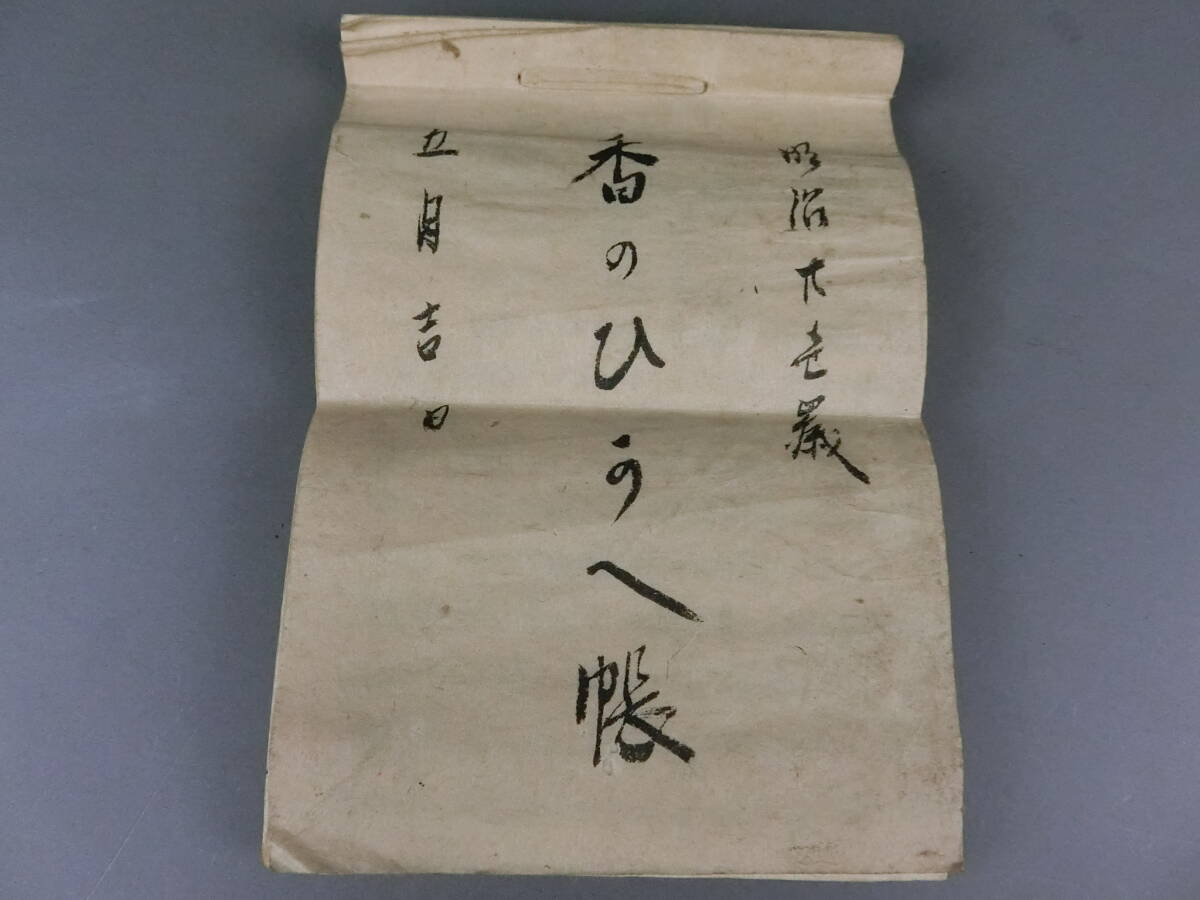 明治廿壱歳
香のひかへ帳
五月吉日